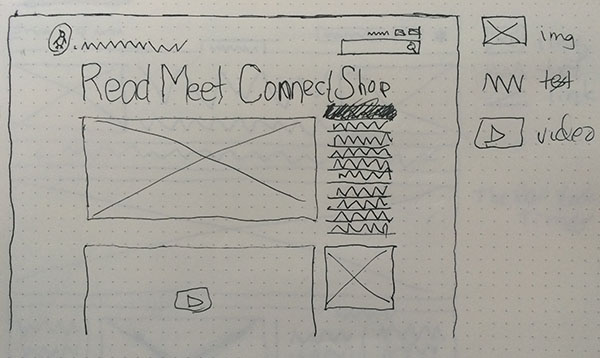 Read Meet Connect Shop
img
text
video